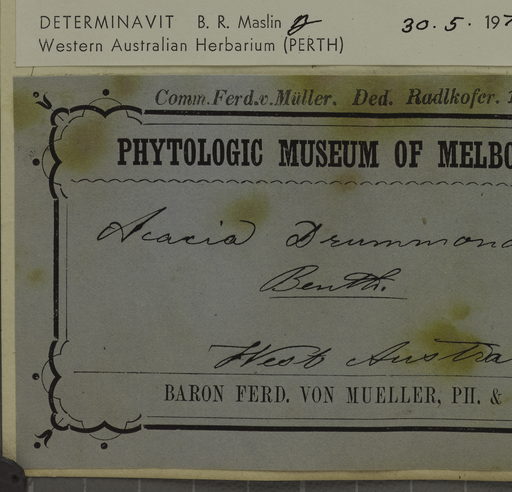 DETERMINAVIT B. R. Maslin 30.5.197
Western Australian Herbarium (PERTH)
Comm. Ferd. v. Müller. Ded. Radlkofer.
PHYTOLOGIC MUSEUM OF MELBO
Acacia Drummond
Benth.
West Austra
BARON FERD. VON MUELLER, PH. &